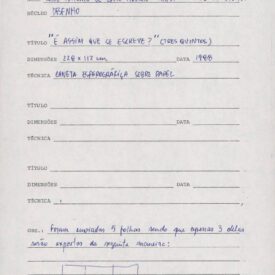 NÚCLEO DESENHO
TÍTULO "É ASSIM QUE SE ESCREVE?" (TRES QUINTOS)
DIMENSÕES 228 x 112 cm DATA 1988
TÉCNICA CANETA ESFEROGRÁFICA SOBRE PAPEL
TÍTULO
DIMENSÕES DATA
TÉCNICA
TÍTULO
DIMENSÕES DATA
TÉCNICA
OBS.: Foram enviadas 5 folhas sendo que apenas 3 delas
serão expostas da seguinte maneira: